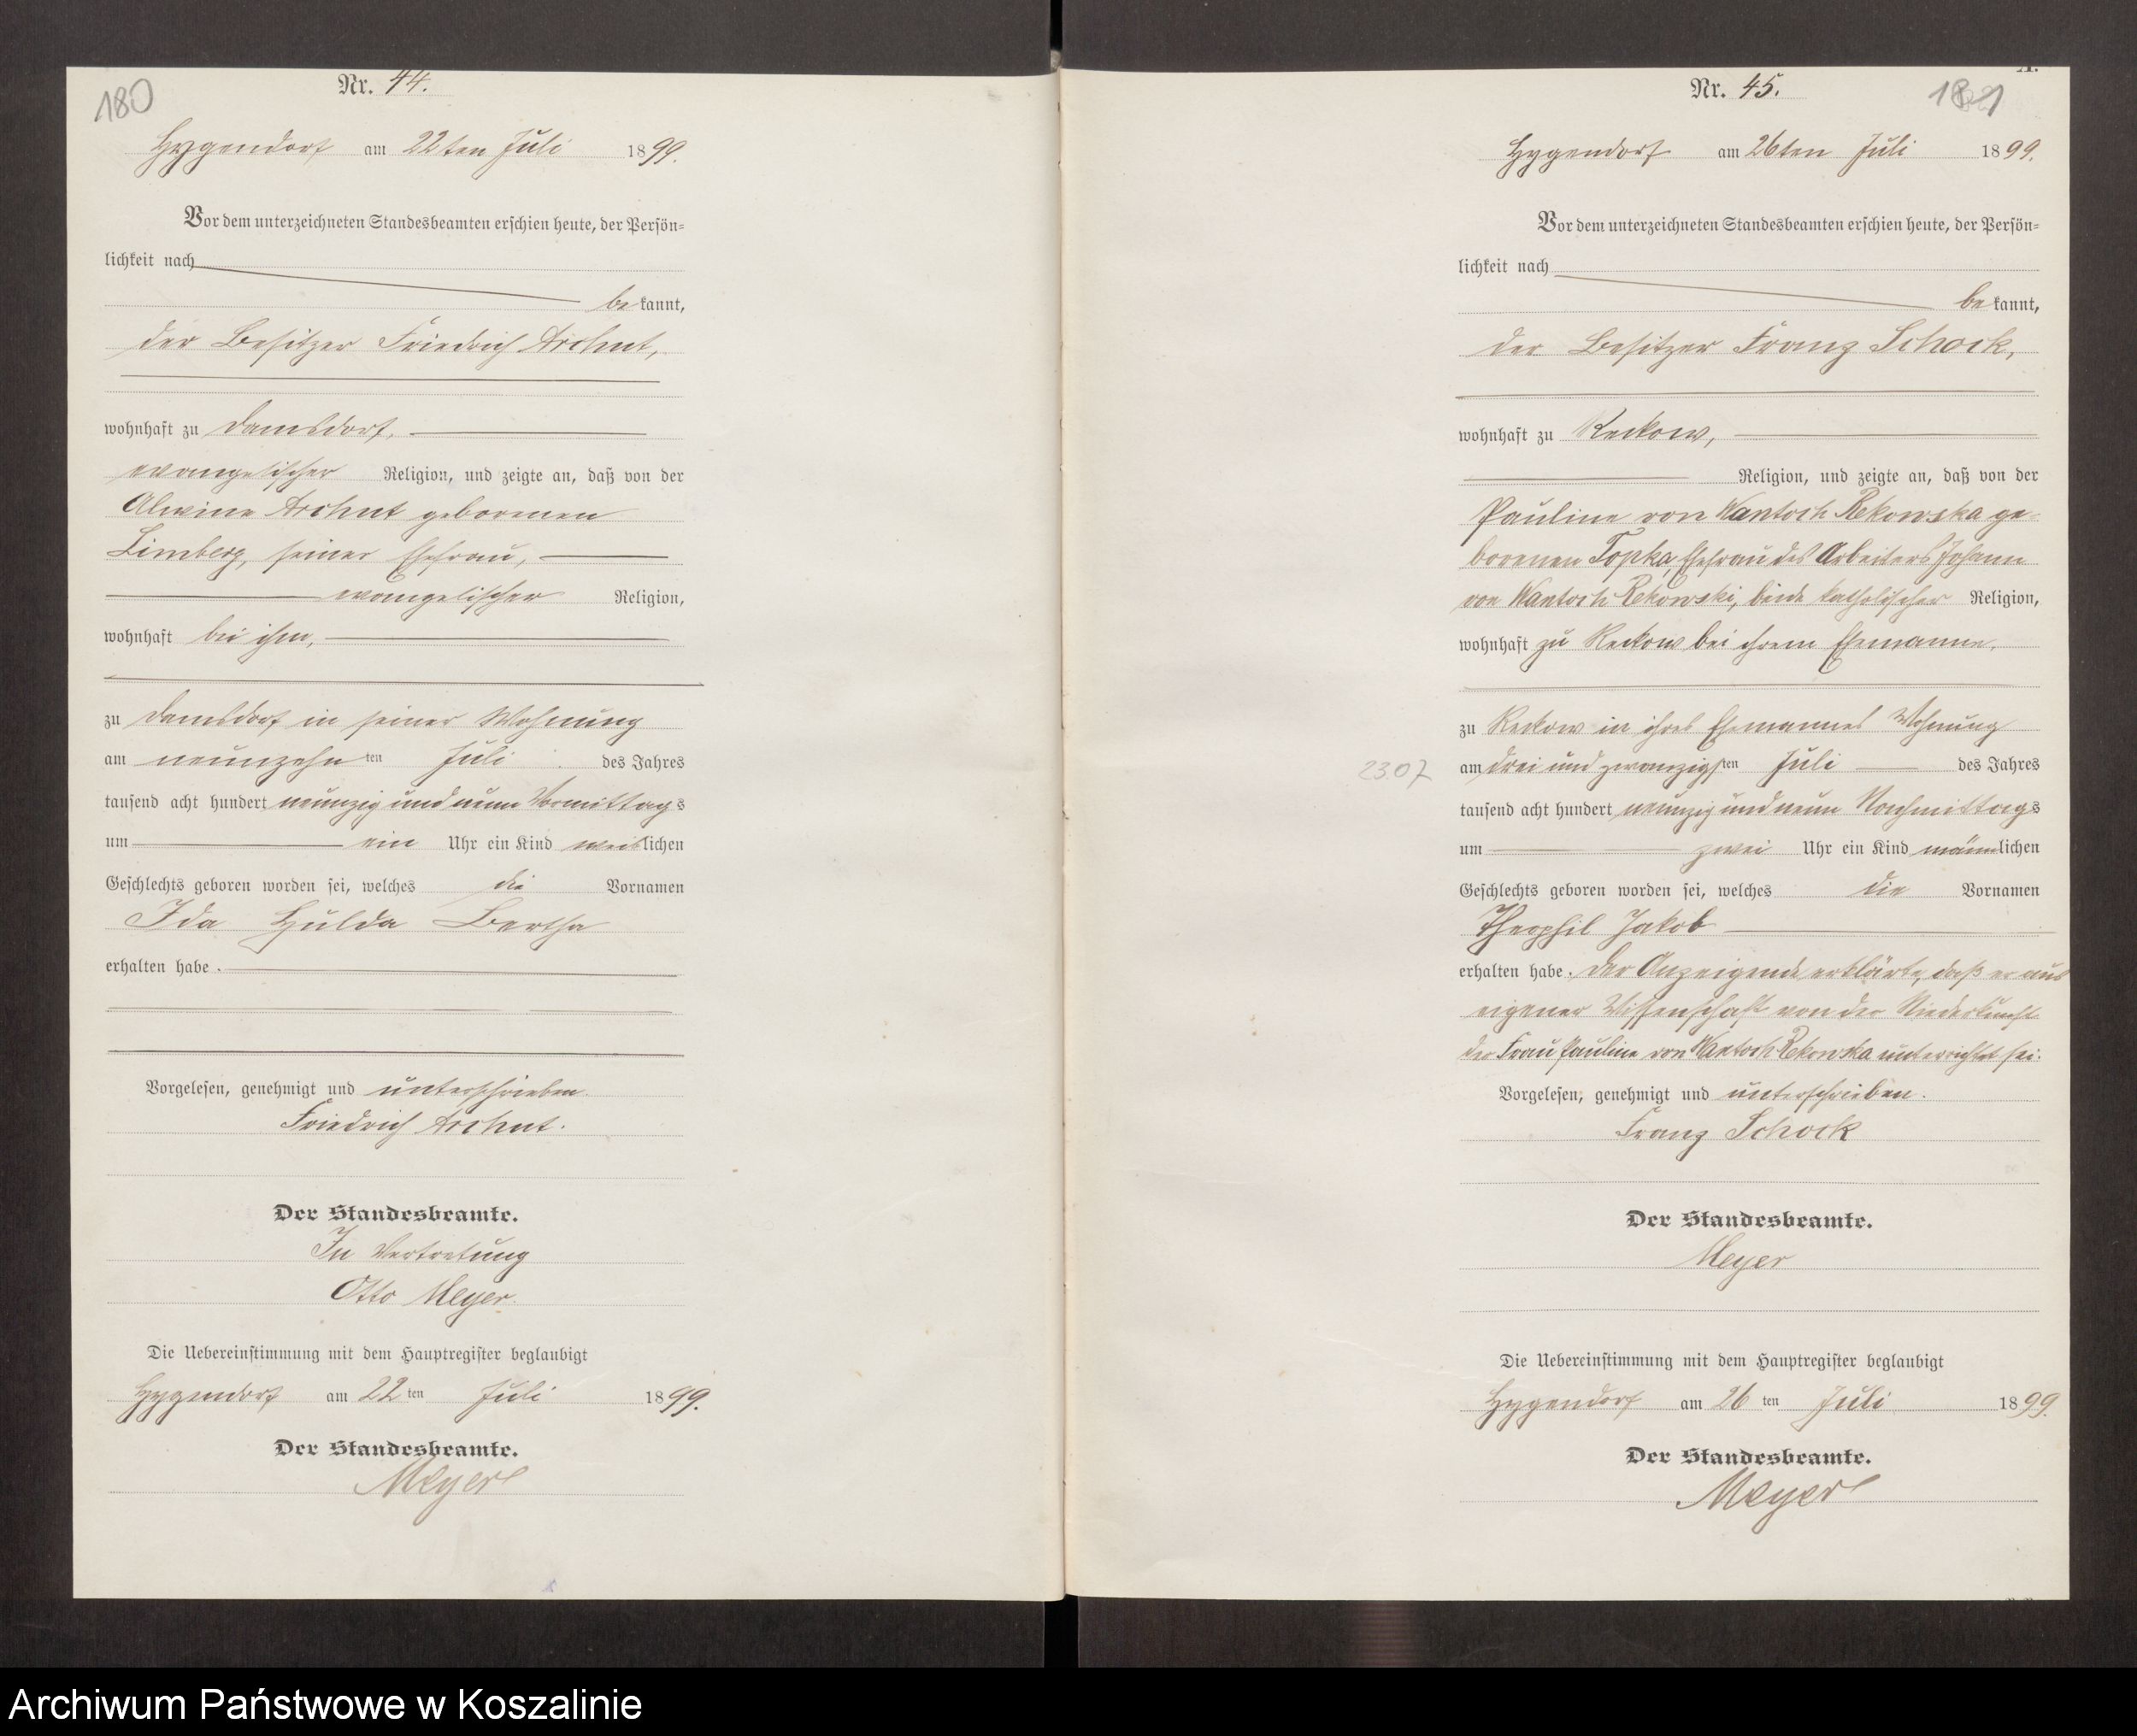 180
Nr. 44.
Hygendorf am 22ten Juli 1899.
Vor dem unterzeichneten Standesbeamten erschien heute, der Persön-
lichkeit nach
bekannt,
der Besitzer Friedrich Archut,
wohnhaft zu Damsdorf,
evangelischer Religion, und zeigte an, daß von der
Alwine Archut geborenen
Limberg, seiner Ehefrau,
evangelischer Religion,
wohnhaft bei ihm,
zu Damsdorf in seiner Wohnung
am neunzehnten Juli des Jahres
tausend acht hundert neunzig und neun Vormittags
um ein Uhr ein Kind weiblichen
Geschlechts geboren worden sei, welches die Vornamen
Ida Hulda Bertha
erhalten habe.
Vorgelesen, genehmigt und unterschrieben.
Friedrich Archut.
Der Standesbeamte.
In Vertretung
Otto Meyer.
Die Uebereinstimmung mit dem Hauptregister beglaubigt
Hygendorf am 22ten Juli 1899.
Der Standesbeamte.
Meyer
Nr. 45.
181
Hygendorf am 26ten Juli 1899.
Vor dem unterzeichneten Standesbeamten erschien heute, der Persön-
lichkeit nach
bekannt,
der Besitzer Franz Schock,
wohnhaft zu Reckow,
Religion, und zeigte an, daß von der
Pauline von Wantoch Rekowska ge-
borenen Topka, Ehefrau des Arbeiters Johann
von Wantoch Rekowski, beide katholischer Religion,
wohnhaft zu Reckow bei ihrem Ehemanne,
zu Reckow in ihres Ehemannes Wohnung
23.07 am drei und zwanzigsten Juli des Jahres
tausend acht hundert neunzig und neun Nachmittags
um zwei Uhr ein Kind männlichen
Geschlechts geboren worden sei, welches die Vornamen
Theophil Jakob
erhalten habe. Der Anzeigende erklärte, daß er aus
eigener Wissenschaft von der Niederkunft
der Frau Pauline von Wantoch Rekowska unterrichtet sei.
Vorgelesen, genehmigt und unterschrieben.
Franz Schock
Der Standesbeamte.
Meyer
Die Uebereinstimmung mit dem Hauptregister beglaubigt
Hygendorf am 26ten Juli 1899.
Der Standesbeamte.
Meyer
Archiwum Państwowe w Koszalinie